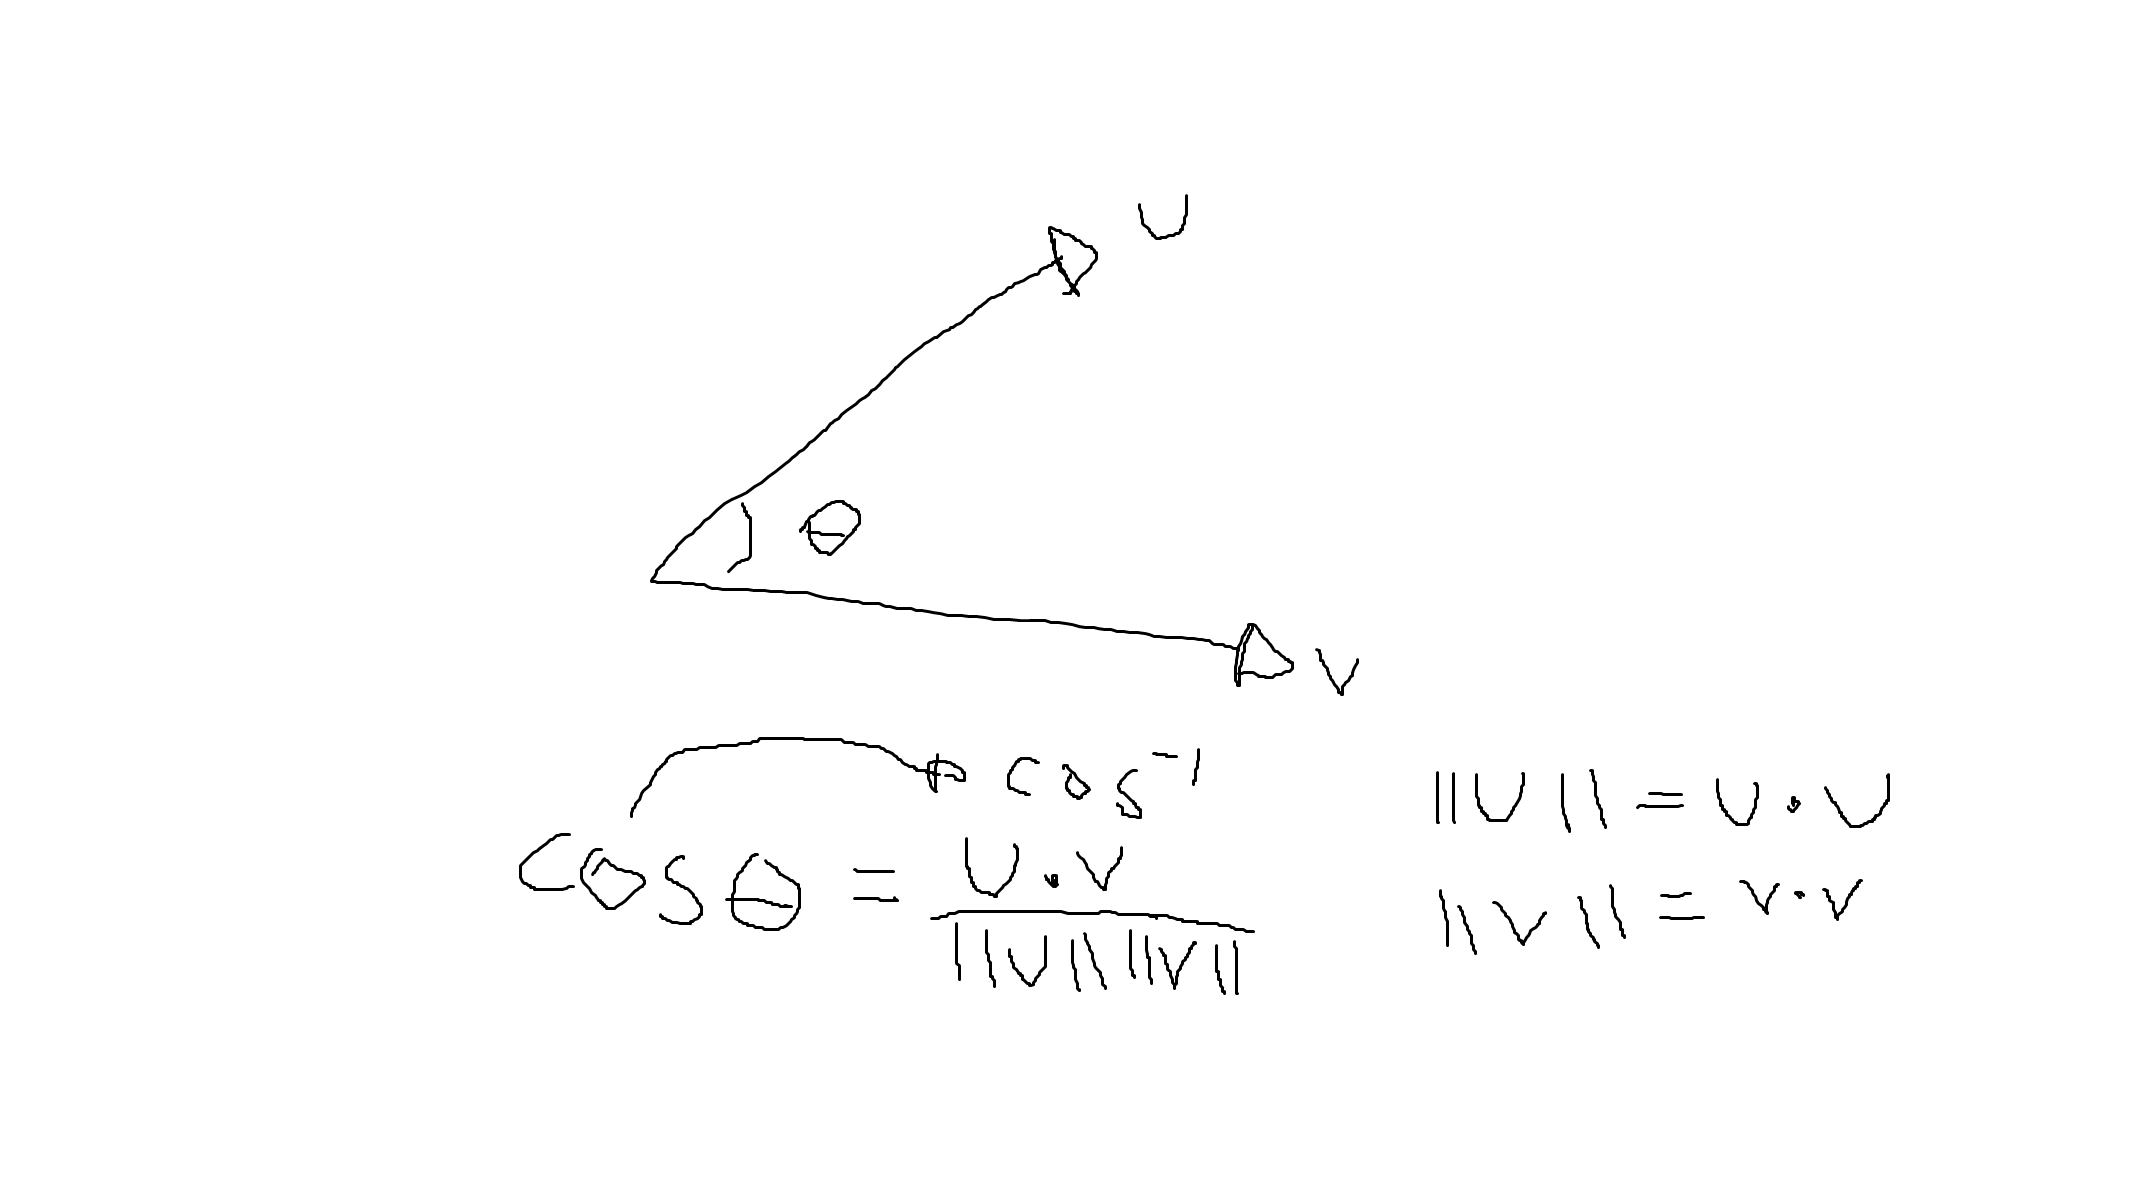 U
θ
V
cos⁻¹
cosθ = U·V / ||U|| ||V||
||U|| = U·U
||V|| = V·V